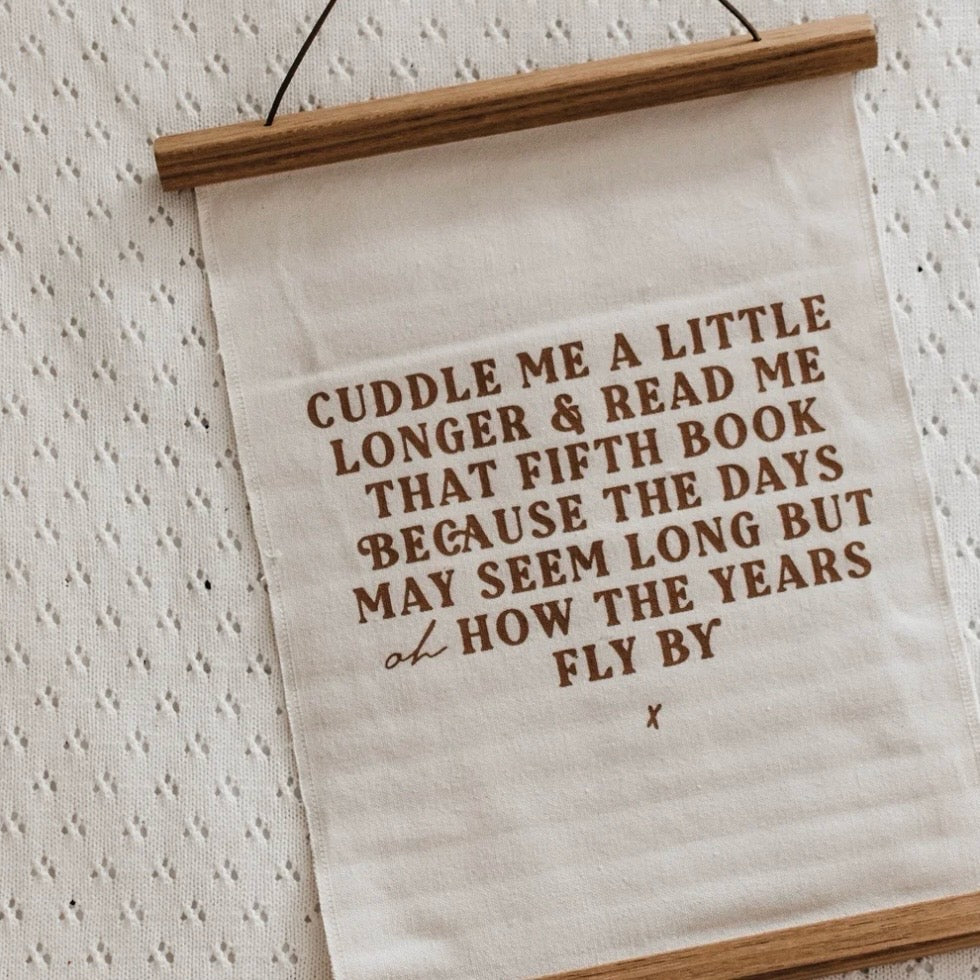 CUDDLE ME A LITTLE
LONGER & READ ME
THAT FIFTH BOOK
BECAUSE THE DAYS
MAY SEEM LONG BUT
oh HOW THE YEARS
FLY BY
x